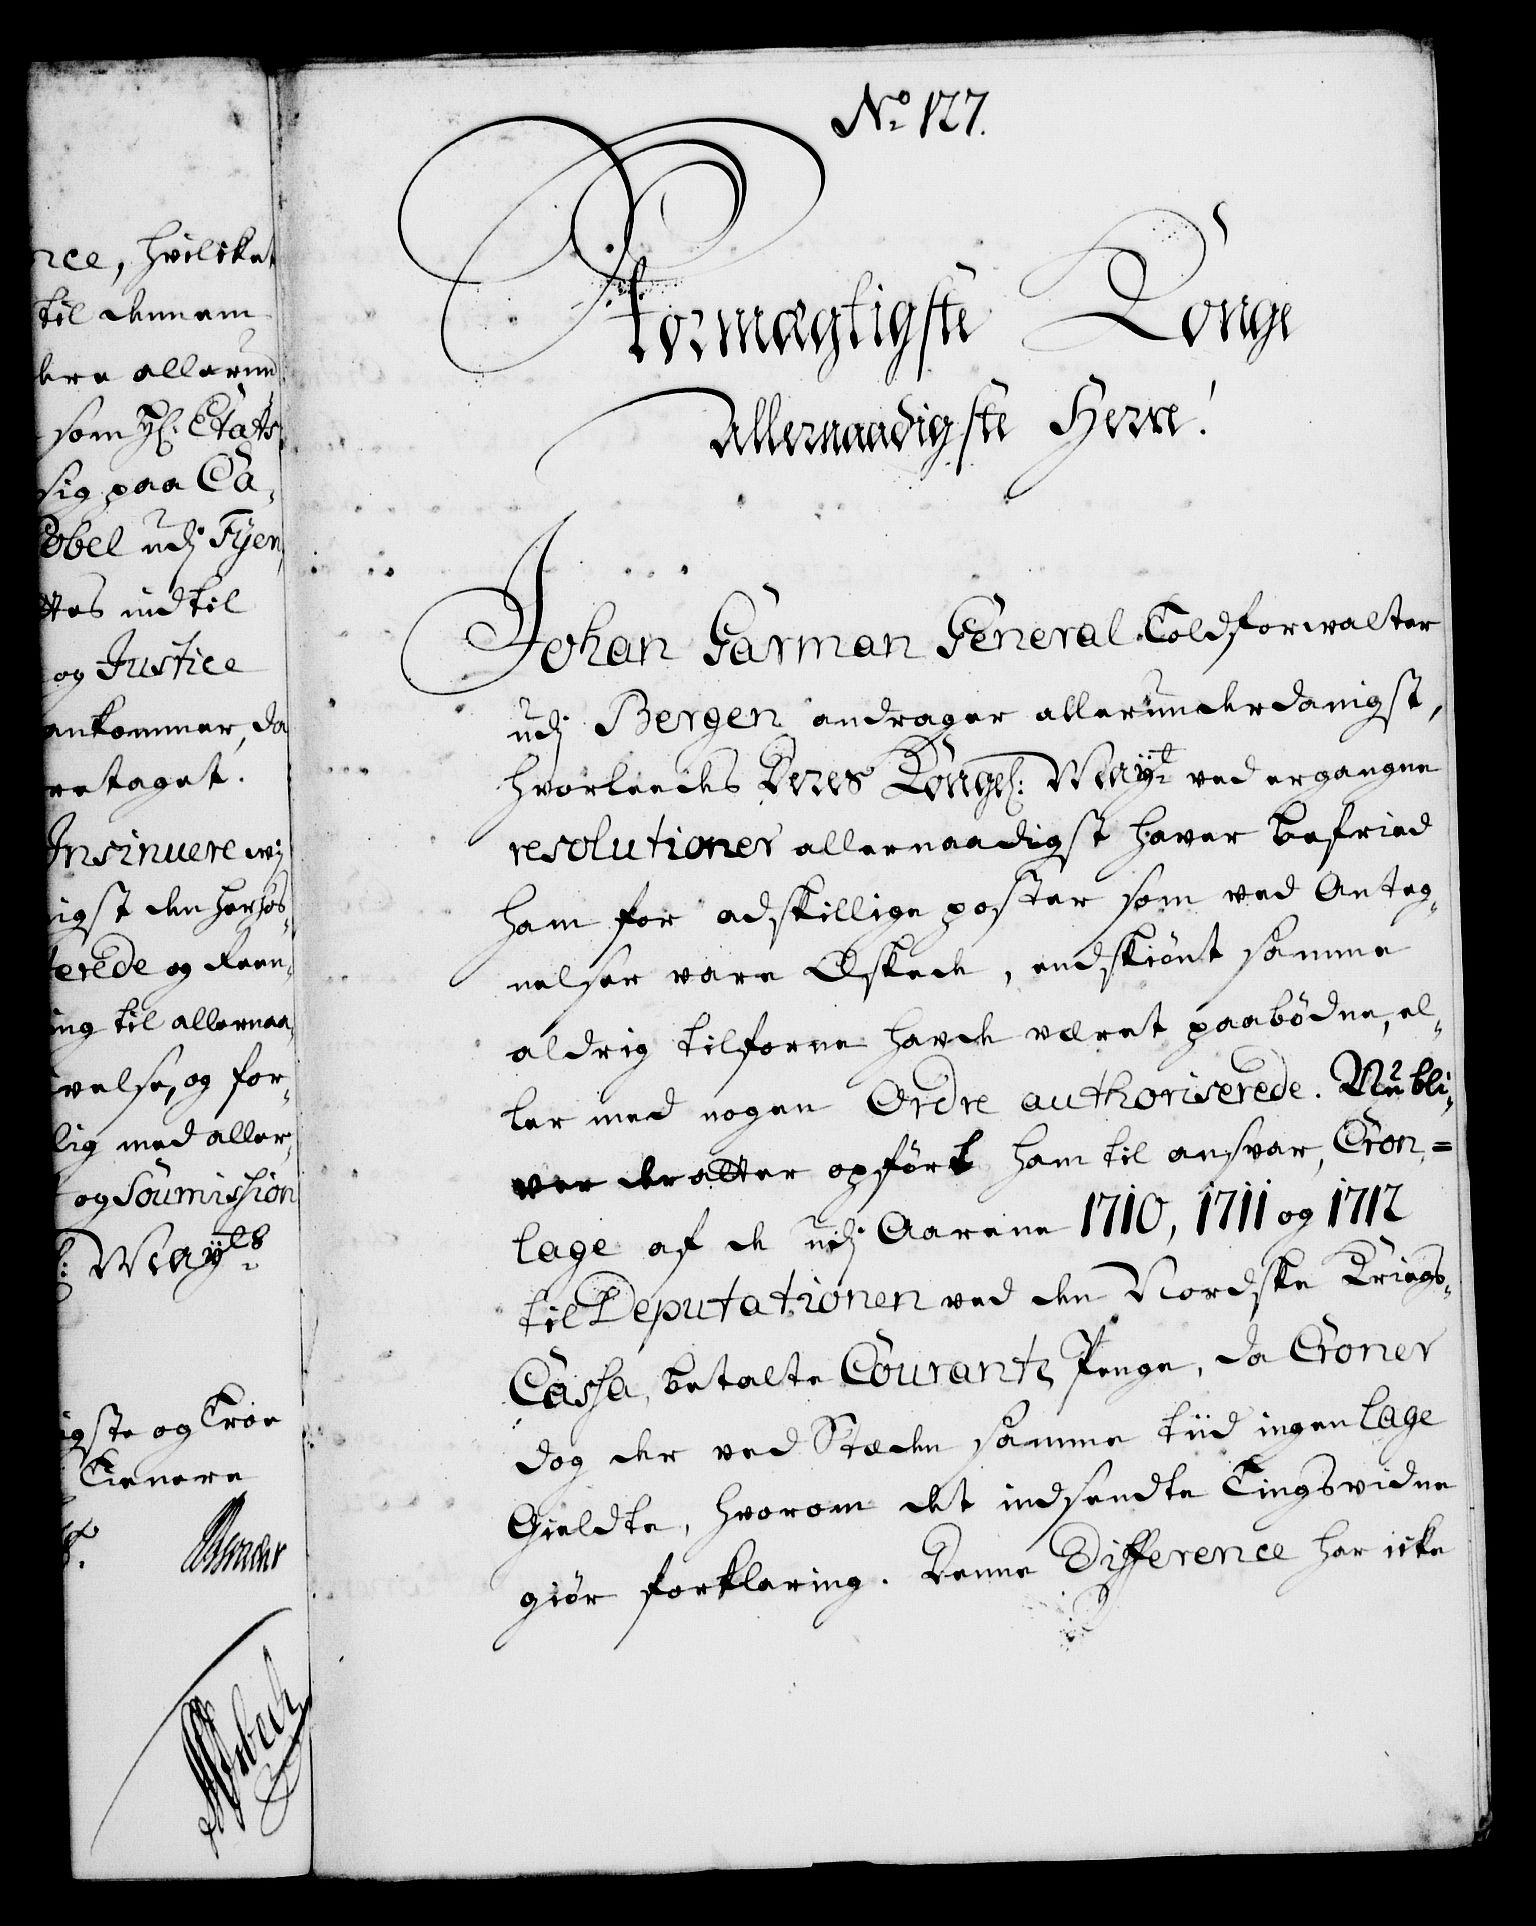 nce, hvilcket
til dennem
dere allerund
som H: Etats
sig paa Ca,
Cobel udj Fyen,
ttes indtil
og Justice
ankommer, da
retaget.
Insinuere wj
igst den herhos,
terede og Reen,
ing til allernaa,
velse, og for,
lig med aller,
og Soumission
l: Mayts
igste og Troe
Tienere
No 127.
Stormægtigste Konge
Allernaadigste Herre!
Johan Garman General Toldforwalter
udj Bergen andrager allerunderdanigst,
hvorleedes Deres Kongel: Mayt ved ergangne
resolutioner allernaadigst haver befried
ham for adskillige poster som ved Anteg,
nelser vare Æskede, endskiönt samme
aldrig tilforne havde været paabödne, el,
ler med nogen Ordre authoriserede. Nu bli,
ver deratter opfört ham til ansvar, Cron,=
lage af de udj Aarene 1710, 1711 og 1712
til Deputationen ved den Nordske Kriegs,
Cassa, betalte Courantz Penge, da Croner
dog der ved Stæden samme tiid ingen lage
Gieldte, hvorom det indsendte Tingsvidne
giör forklaring. Denne Difference har icke